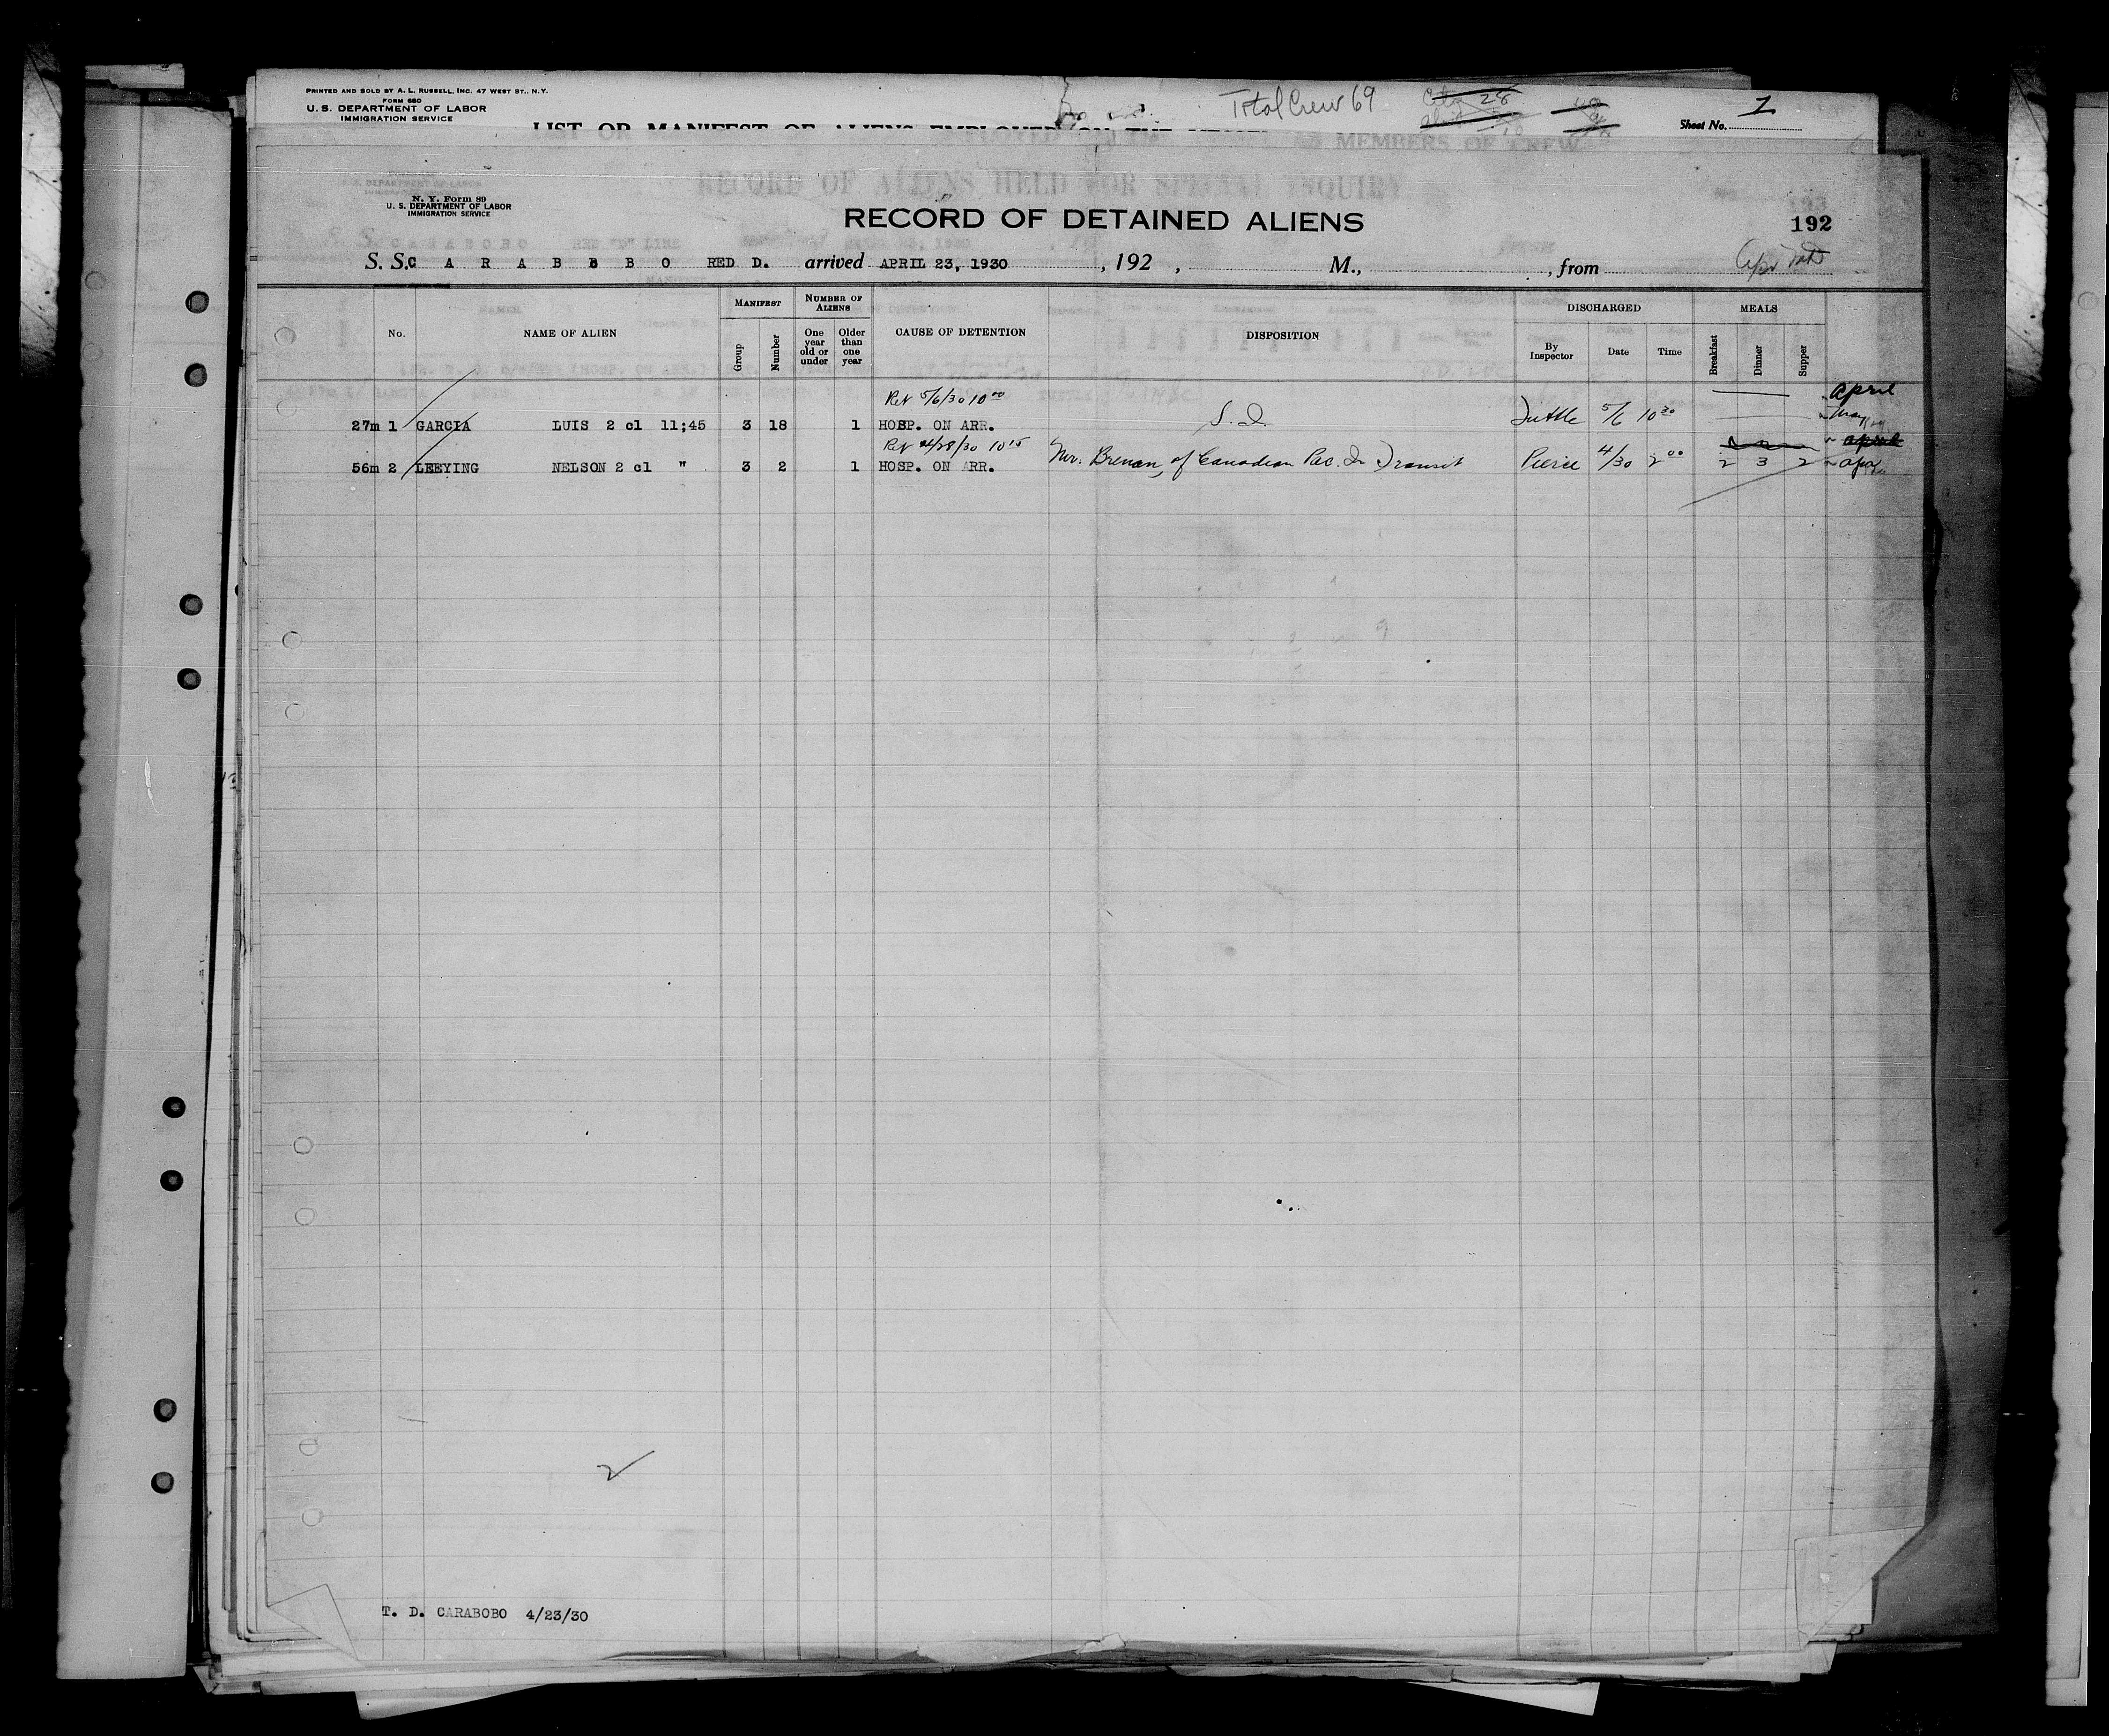 PRINTED AND SOLD BY A. L. RUSSELL, INC. 47 WEST ST., N.Y.
FORM 680
U. S. DEPARTMENT OF LABOR
IMMIGRATION SERVICE
Total Crew 69
28
Sheet No. 1
LIST OR MANIFEST OF ALIENS EMPLOYED ON THE MEMBERS OF CREW
RECORD OF ALIENS HELD FOR SPECIAL INQUIRY
193
N. Y. Form 89
U. S. DEPARTMENT OF LABOR
IMMIGRATION SERVICE
RECORD OF DETAINED ALIENS
192
S. S. C A R A B O B O RED D. arrived APRIL 23, 1930 , 192 , M., , from
No.
NAME OF ALIEN
MANIFEST
Group
Number
NUMBER OF ALIENS
One year old or under
Older than one year
CAUSE OF DETENTION
DISPOSITION
DISCHARGED
By Inspector
Date
Time
MEALS
Breakfast
Dinner
Supper
Ret 5/6/30 10 00
April
27m 1 GARCIA LUIS 2 cl 11;45 3 18 1 HOSP. ON ARR. S. I. Tuttle 5/6 10 30 May
Ret 4/28/30 10 15
april
56m 2 LEEYING NELSON 2 cl " 3 2 1 HOSP. ON ARR. Mr. Brenan, of Canadian Pac. In Transit Pierce 4/30 2 00 2 3 2
2
T. D. CARABOBO 4/23/30